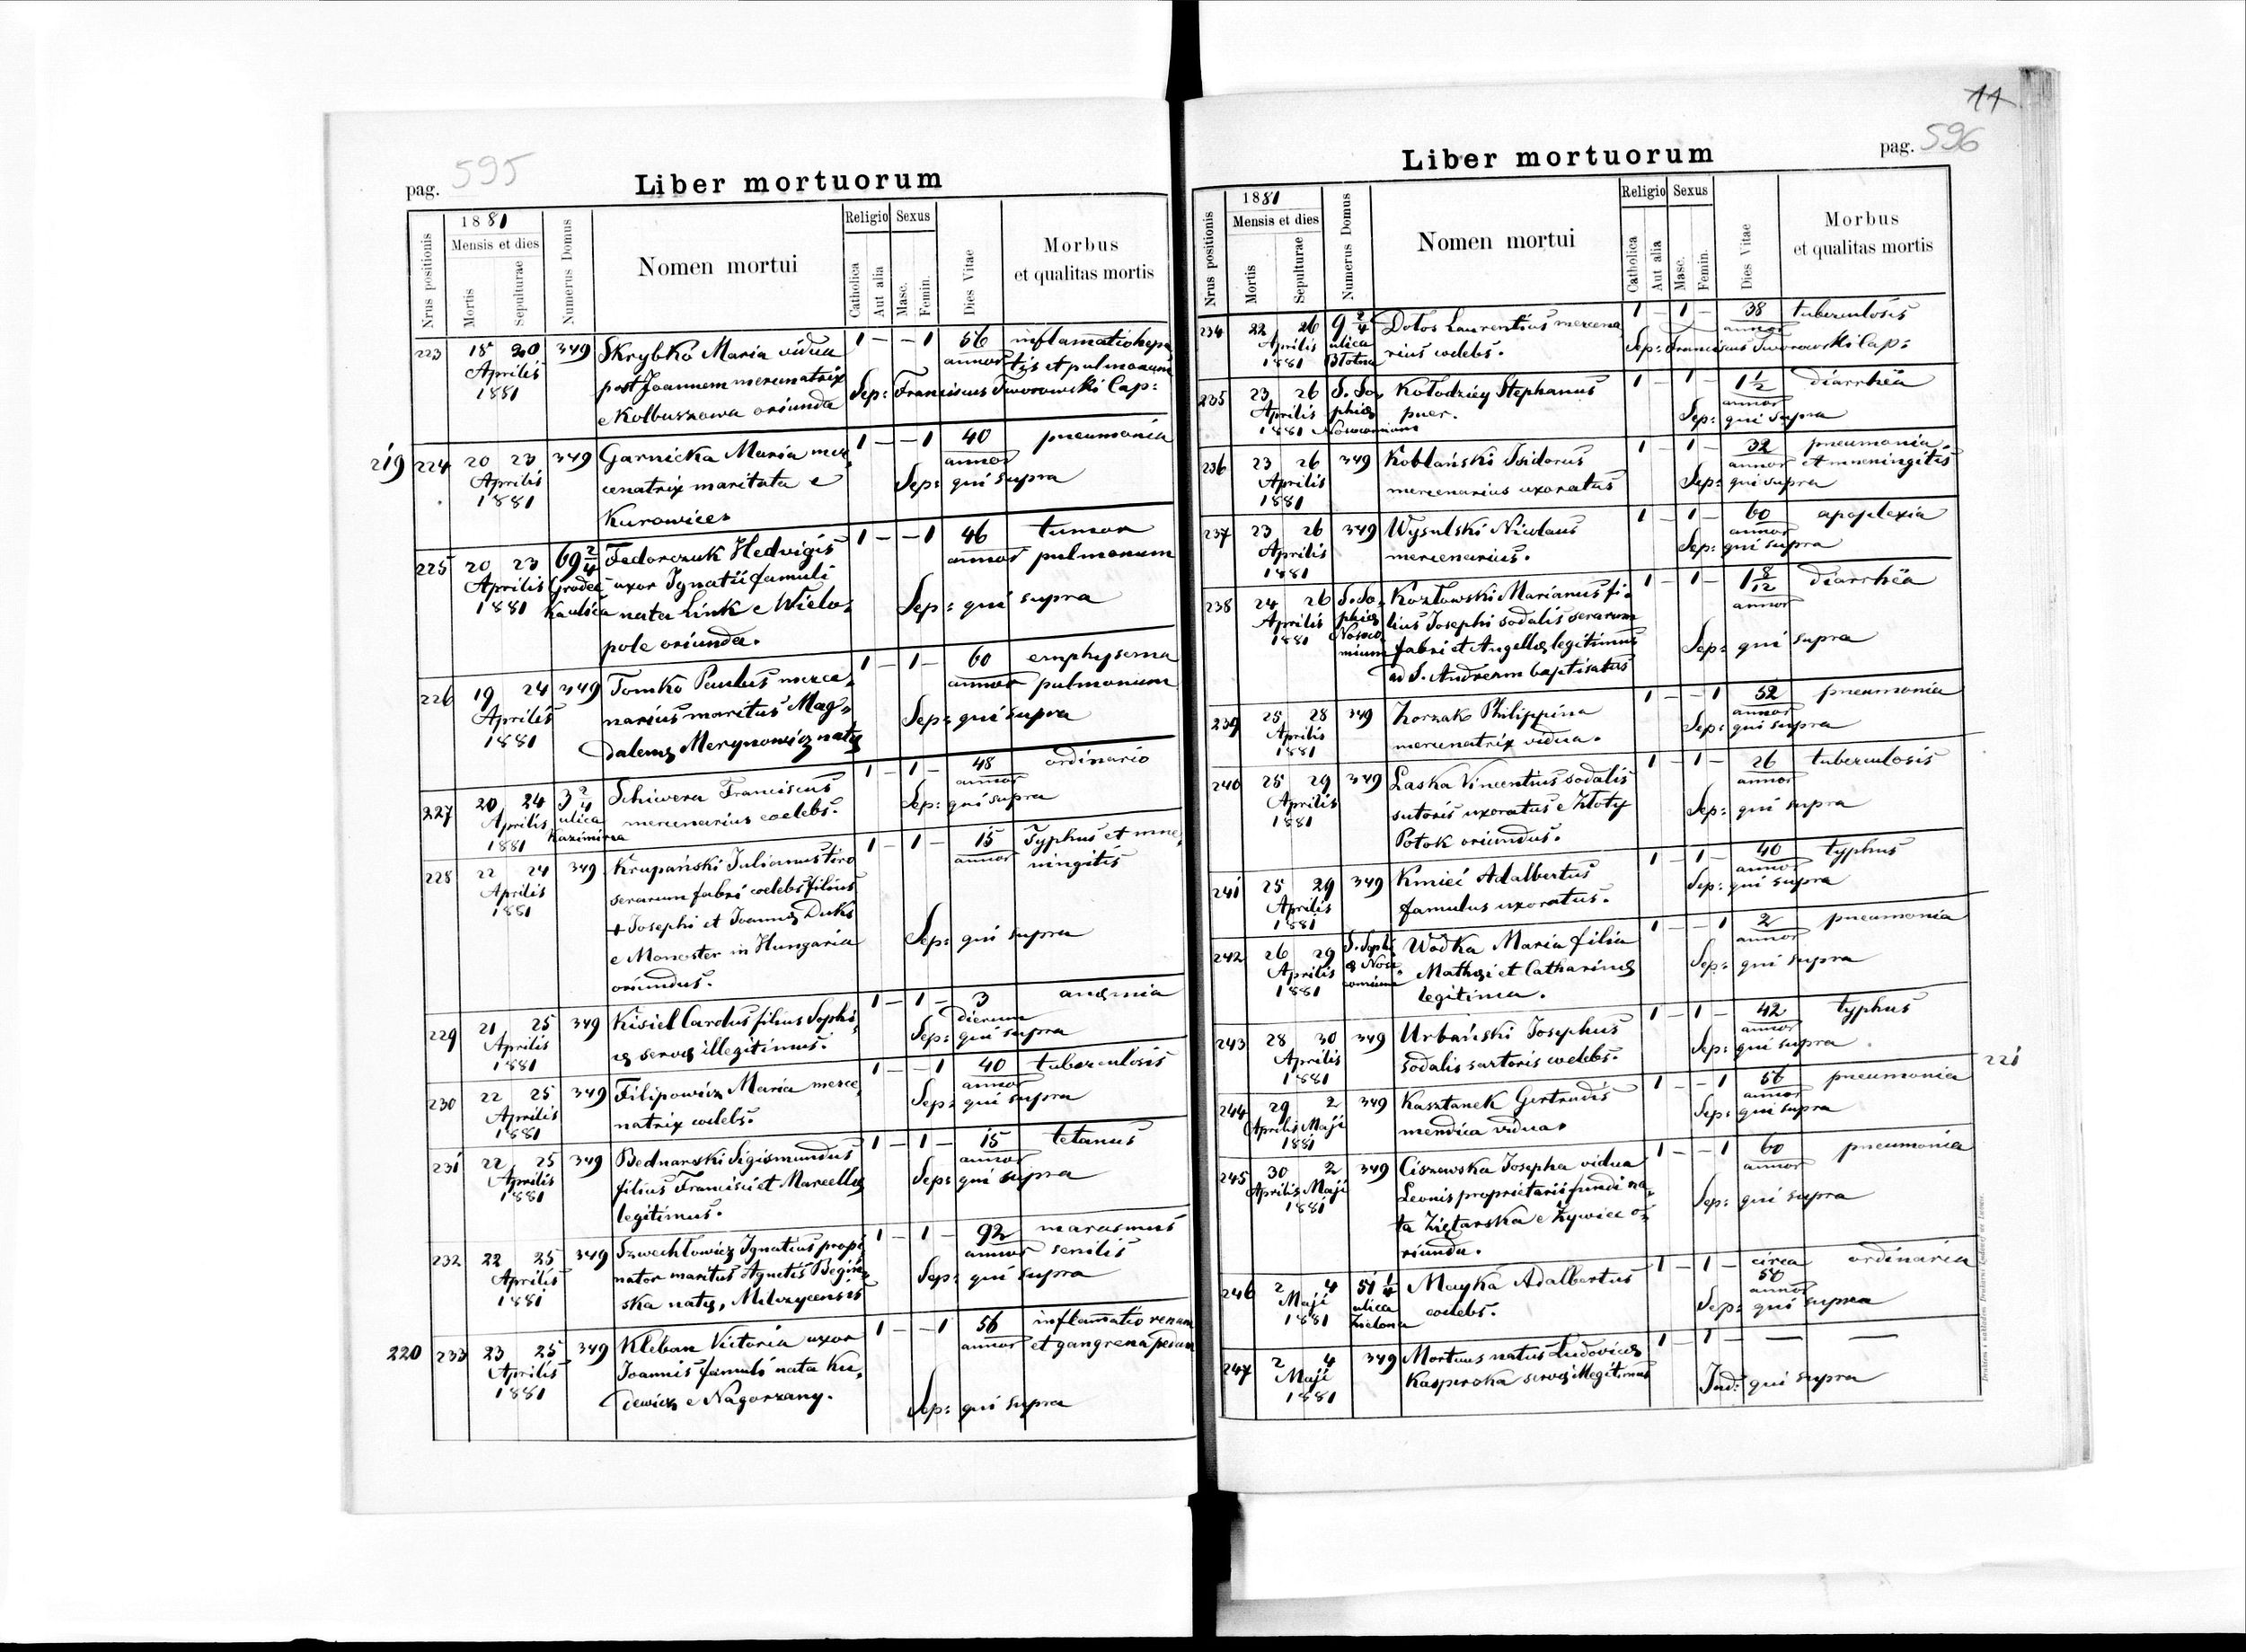 pag. 595
Liber mortuorum
Nrus positionis
1881
Mensis et dies
Mortis
Sepulturae
Numerus Domus
Nomen mortui
Religio
Catholica
Aut alia
Sexus
Masc.
Femin.
Dies Vitae
Morbus
et qualitas mortis
223 18 20 349 Skrybko Maria vidua 1 — — 1 56 inflamatio hepa
Aprilis post Joannem mercenatrix annor tis et pulmonum
1881 e Kolbuszowa oriunda Sep: Franciscus Tworowski Cap:
219 224 20 23 349 Garnicka Maria mer, 1 — — 1 40 pneumonia
Aprilis cenatrix maritata e annor
1881 Kurowice Sep: qui supra
225 20 23 69 2/4 Fedorczuk Hedvigis 1 — — 1 46 tumor
Aprilis Grodec uxor Ignatii famuli annor pulmonum
1881 Kaulica nata Link e Wielo, Sep: qui supra
pole oriunda.
226 19 24 349 Tomko Paulus merce, 1 — 1 — 60 emphysema
Aprilis narius maritus Mag, annor pulmonum
1881 dalenæ Merynowicz natæ Sep: qui supra
227 20 24 3 2/4 Schiwera Franciscus 1 — 1 — 48 ordinario
Aprilis ulica mercenarius coelebs. annor
1881 Kazimirza Sep: qui supra
228 22 24 349 Krupański Julianus tiro 1 — 1 — 15 Typhus et mne,
Aprilis serarum fabri coelebs filius annor ningitis
1881 + Josephi et Joannæ Duks
e Monaster in Hungaria Sep: qui supra
oriundus.
229 21 25 349 Kisiel Carolus filius Sophi, 1 — 1 — 3 anæmia
Aprilis æ servæ illegitimus. dierum
1881 Sep: qui supra
230 22 25 349 Filipowicz Maria merce, 1 — — 1 40 tuberculosis
Aprilis natrix coelebs. annor
1881 Sep: qui supra
231 22 25 349 Bednarski Sigismundus 1 — 1 — 15 tetanus
Aprilis filius Francisci et Marcellæ annor
1881 legitimus. Sep: qui supra
232 22 25 349 Szwechłowicz Ignatius propi 1 — 1 — 92 marasmus
Aprilis nator maritus Agnetis Begin, annor senilis
1881 ska natæ, Milczycensis Sep: qui supra
220 233 23 25 349 Kleban Victoria uxor 1 — — 1 56 inflamatio renum
Aprilis Joannis famuli nata Ku, annor et gangrena pedum
1881 cewicz e Nagorzany. Sep: qui supra
11
pag. 596
Liber mortuorum
Nrus positionis
1881
Mensis et dies
Mortis
Sepulturae
Numerus Domus
Nomen mortui
Religio
Catholica
Aut alia
Sexus
Masc.
Femin.
Dies Vitae
Morbus
et qualitas mortis
234 22 26 9 2/4 Dotos Laurentius mercena 1 — 1 — 38 tuberculosis
Aprilis ulica rius coelebs. annor
1881 Błotna Sep: Franciscus Tworowski Cap:
235 23 26 S. So, Kołodziey Stephanus 1 — 1 — 1 1/2 diarrhëa
Aprilis phiæ puer. annor
1881 Nosocomium Sep: qui supra
236 23 26 349 Koblański Isidorus 1 — 1 — 32 pneumonia
Aprilis mercenarius uxoratus annor et mneningitis
1881 Sep: qui supra
237 23 26 349 Wysulski Nicolaus 1 — 1 — 60 apoplexia
Aprilis mercenarius. annor
1881 Sep: qui supra
238 24 26 S. So, Kozłowski Marianus fi, 1 — 1 — 1 8/12 diarrhëa
Aprilis phiæ lius Josephi sodalis serarum annor
1881 Nosoco mium fabri et Angellæ legitimus Sep: qui supra
ad S. Andream baptisatus
239 25 28 349 Zorzak Philippina 1 — — 1 52 pneumonia
Aprilis mercenatrix vidua. annor
1881 Sep: qui supra
240 25 29 349 Laska Vincentius sodalis 1 — 1 — 26 tuberculosis
Aprilis sutoris uxoratus e Złoty annor
1881 Potok oriundus. Sep: qui supra
241 25 29 349 Kmieć Adalbertus 1 — 1 — 40 typhus
Aprilis famulus uxoratus. annor
1881 Sep: qui supra
242 26 29 S. Sophi Wodka Maria filia 1 — — 1 2 pneumonia
Aprilis æ Noso, Mathæi et Catharinæ annor
1881 comium legitima. Sep: qui supra
243 28 30 349 Urbański Josephus 1 — 1 — 42 typhus
Aprilis sodalis sartoris coelebs. annor
1881 Sep: qui supra
221
244 29 2 349 Kasztanek Gertrudis 1 — — 1 56 pneumonia
Aprilis Maji mendica vidua. annor
1881 Sep: qui supra
245 30 2 349 Ciszewska Josepha vidua 1 — — 1 60 pneumonia
Aprilis Maji Leonis proprietarii fundi na, annor
1881 ta Ziętarska e Żywiec o, Sep: qui supra
riunda.
246 2 4 51 1/4 Mayka Adalbertus 1 — 1 — circa 50 ordinaria
Maji ulica coelebs. annor
1881 Zielona Sep: qui supra
247 2 4 349 Mortuus natus Ludovicæ 1 — 1 — — —
Maji Kasperska servæ illegitimus
1881 Ind: qui supra